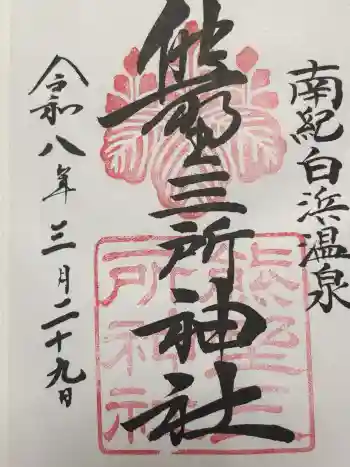 南紀白浜温泉
熊野三所神社
令和八年三月二十九日
熊野三
所神社